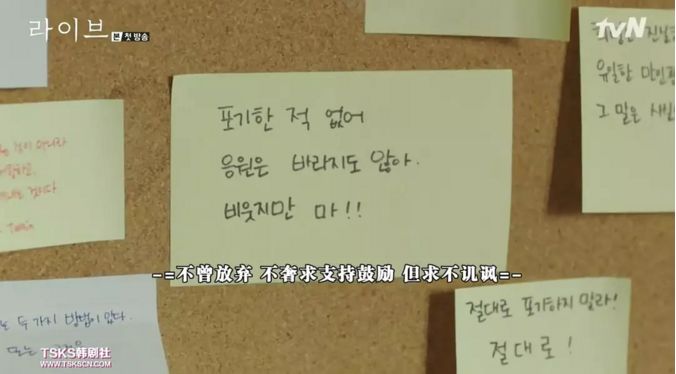 라이브
본 첫 방송
tvN
유일한
그 말은
포기한 적 없어
응원은 바라지도 않아.
비웃지만 마!!
것이 아니라
-=不曾放弃 不奢求支持鼓励 但求不讥讽=-
두 가지 방법이 있다.
또는
절대로 포기하지 말라!
절대로!
TSKS韩剧社
WWW.TSKSCN.COM